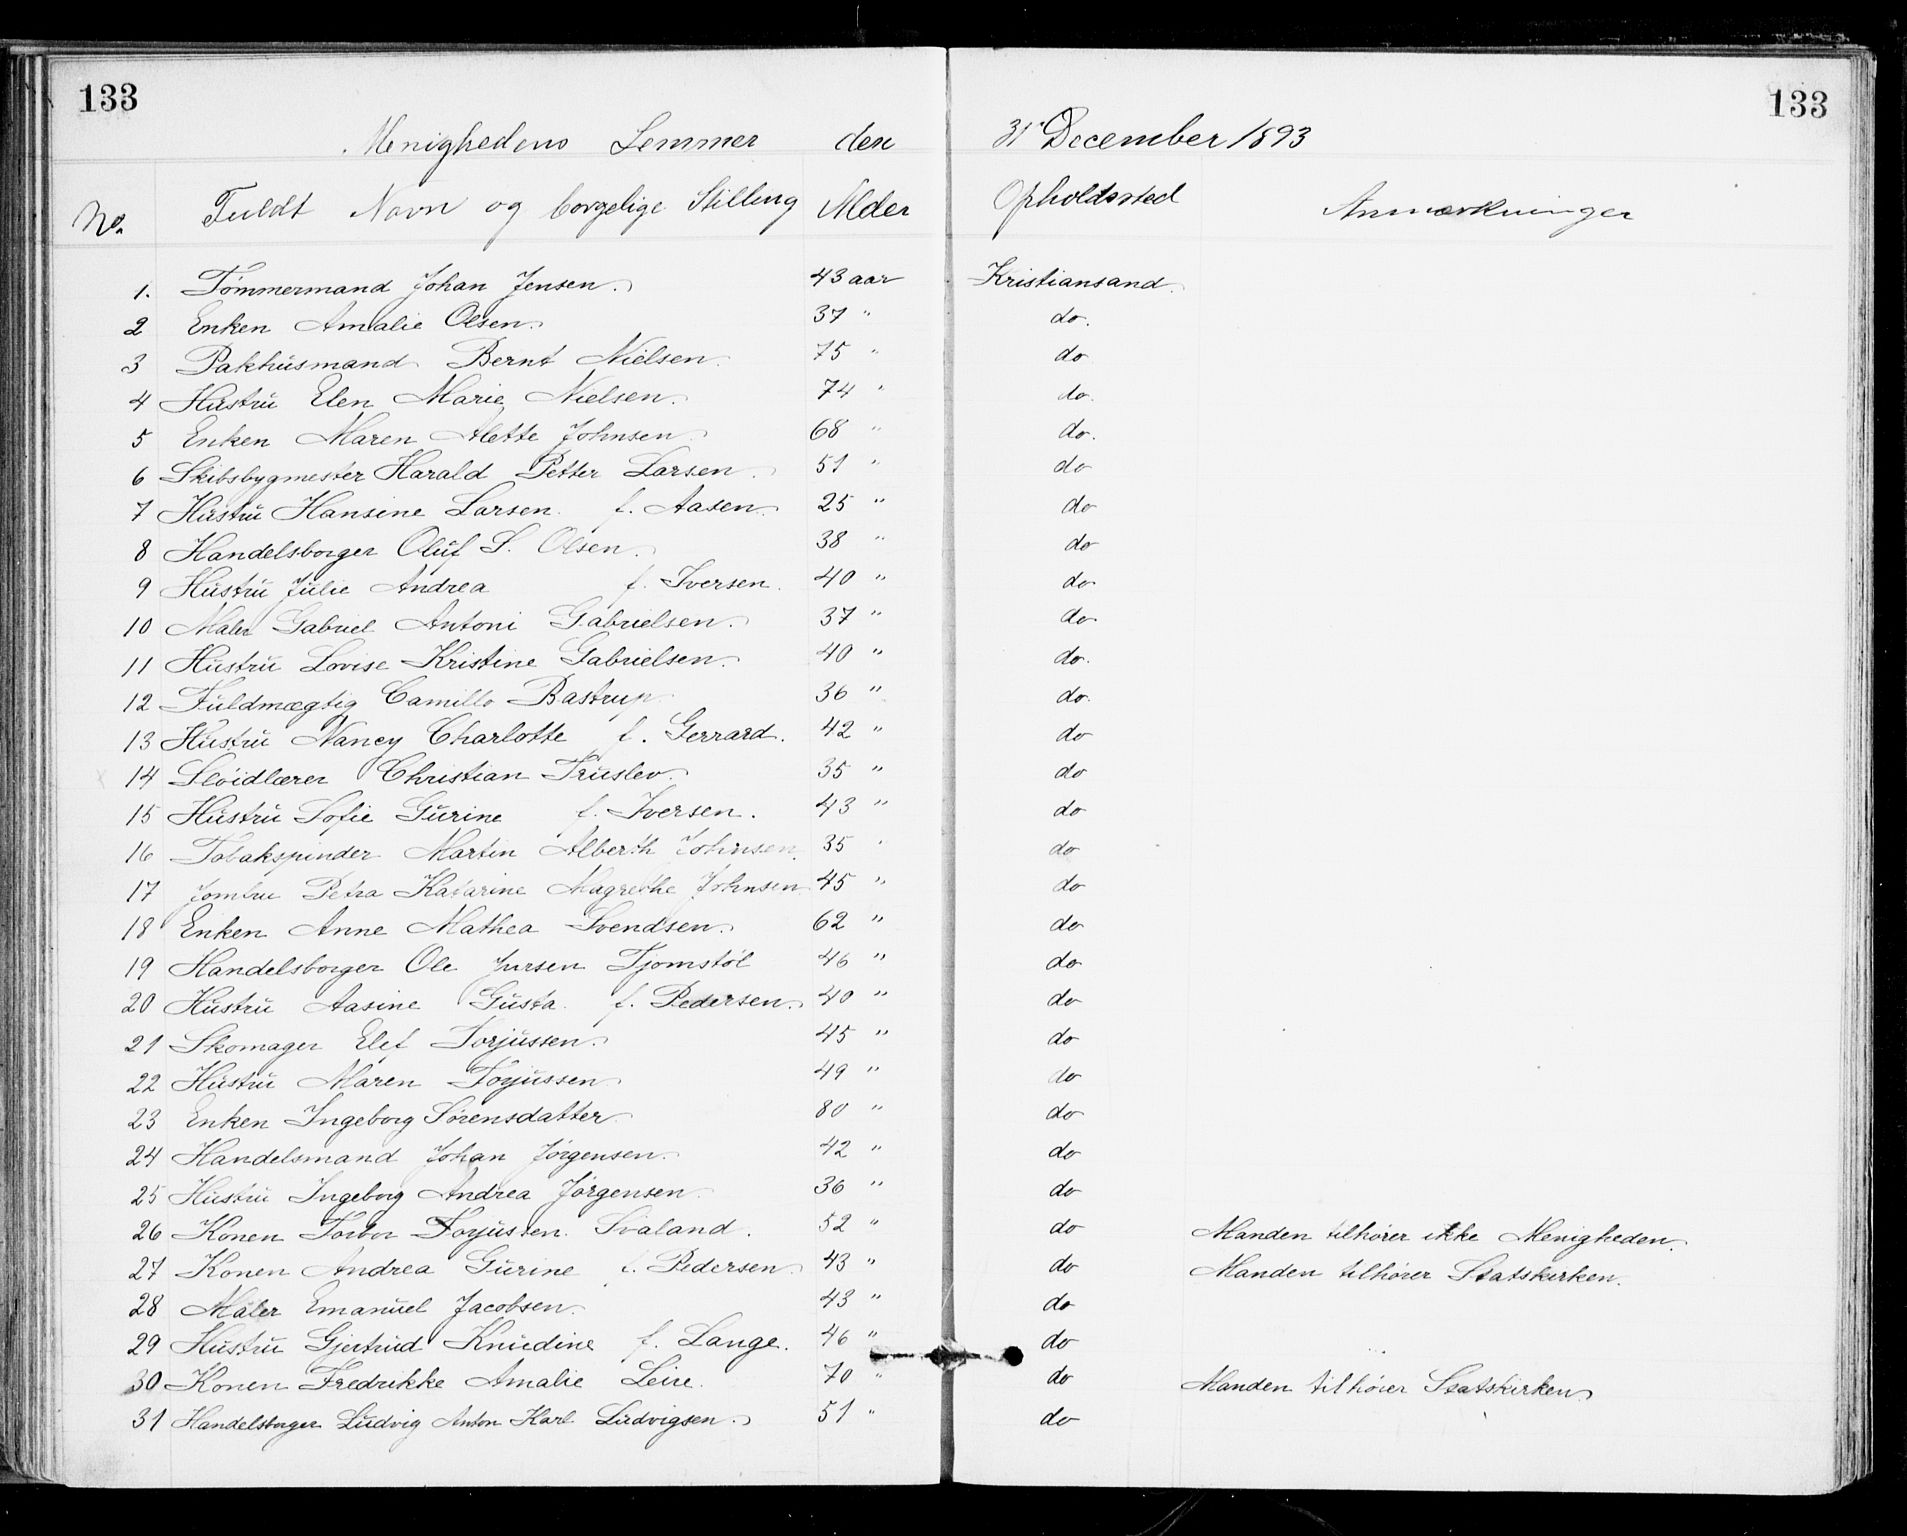 133 133
Menighedens Lemmer den 31 December 1893
No. Fuldt Navn og borgelige Stilling Alder Opholdssted Anmærkninger
1. Tømmermand Johan Jensen. 43 aar Kristiansand.
2 Enken Amalie Olsen. 37 " do.
3 Pakhusmand Bernt Nielsen. 75 " do
4 Hustru Elen Marie Nielsen. 74 " do.
5 Enken Maren Mette Johnsen. 68 " do.
6 Skibsbygmester Harald Petter Larsen. 51 " do
7 Hustru Hansine Larsen. f. Aasen. 25 " do
8 Handelsborger Oluf S. Olsen. 38 " do
9 Hustru Julie Andrea f. Iversen. 40 " do
10 Maler Gabriel Antoni Gabrielsen. 37 " do
11 Hustru Lovise Kristine Gabrielsen. 40 " do.
12 Fuldmægtig Camillo Bastrup. 36 " do.
13 Hustru Nancy Charlotte f. Gerrard. 42 " do
14 Sløidlærer Christian Truslev. 35 " do
15 Hustru Sofie Gurine f. Iversen. 43 " do
16 Tobakspinder Martin Alberth Johnsen. 35 " do
17 Jomfru Petra Katarine Magrethe Johnsen 45 " do
18 Enken Anne Mathea Svendsen. 62 " do
19 Handelsborger Ole Jursen Tjomstøl 46 " do
20 Hustru Aasine Gusta. f. Pedersen. 40 " do
21 Skomager Elef Torjussen. 45 " do
22 Hustru Maren Torjussen 49 " do
23 Enken Ingeborg Sørensdatter. 80 " do
24 Handelsmand Johan Jørgensen. 42 " do
25 Hustru Ingeborg Andrea Jørgensen. 36 " do
26 Konen Torbor Torjussen Svaland. 52 " do Manden tilhører ikke Menigheden.
27 Konen Andrea Gurine f. Pedersen 43 " do Manden tilhører Statskirken.
28 Maler Emanuel Jacobsen. 43 " do
29 Hustru Gjertrud Knudine f. Lange. 46 " do
30 Konen Fredrikke Amalie Leire. 70 " do Manden tilhører Statskirken.
31 Handelsborger Ludvig Anton Karl Ludvigsen. 51 " do